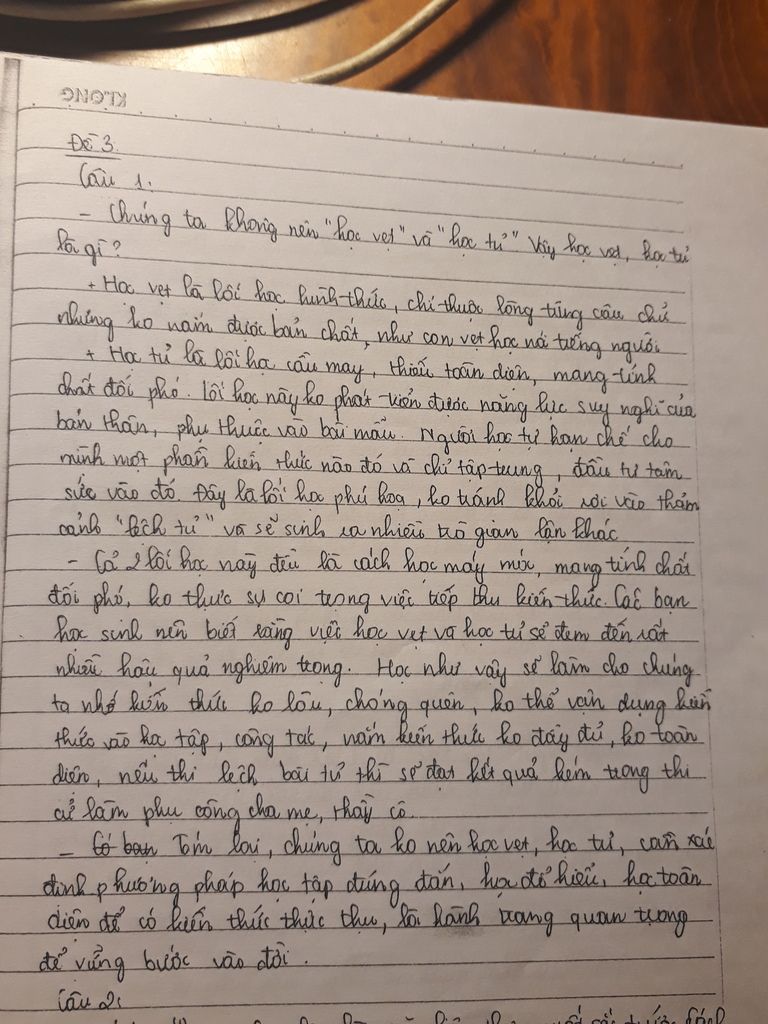 KLONG
Đề 3
Câu 1:
- Chúng ta không nên "học vẹt" và "học tủ". Vậy học vẹt, học tủ
là gì?
+ Học vẹt là lối học hình thức, chỉ thuộc lòng từng câu chữ
nhưng ko nắm được bản chất, như con vẹt học nói tiếng người
+ Học tủ là lối học cầu may, thiếu toàn diện, mang tính
chất đối phó. Lối học này ko phát triển được năng lực suy nghĩ của
bản thân, phụ thuộc vào bài mẫu. Người học tự hạn chế cho
mình một phần kiến thức nào đó và chỉ tập trung, đầu tư tâm
sức vào đó. Đây là lối học phù hoa, ko tránh khỏi rơi vào thảm
cảnh "lệch tủ" và sẽ sinh ra nhiều trò gian lận khác
- Cả 2 lối học này đều là cách học máy móc, mang tính chất
đối phó, ko thực sự coi trọng việc tiếp thu kiến thức. Các bạn
học sinh nên biết rằng việc học vẹt và học tủ sẽ đem đến rất
nhiều hậu quả nghiêm trọng. Học như vậy sẽ làm cho chúng
ta nhớ kiến thức ko lâu, chóng quên, ko thể vận dụng kiến
thức vào học tập, công tác, nắm kiến thức ko đầy đủ, ko toàn
diện, nếu thi lệch bài tủ thì sẽ đạt kết quả kém trong thi
cử làm phụ công cha mẹ, thầy cô.
- Có bạn Tóm lại, chúng ta ko nên học vẹt, học tủ, cần xác
định phương pháp học tập đúng đắn, học để hiểu, học toàn
diện để có kiến thức thực thụ, là hành trang quan trọng
để vững bước vào đời.
Câu 2: